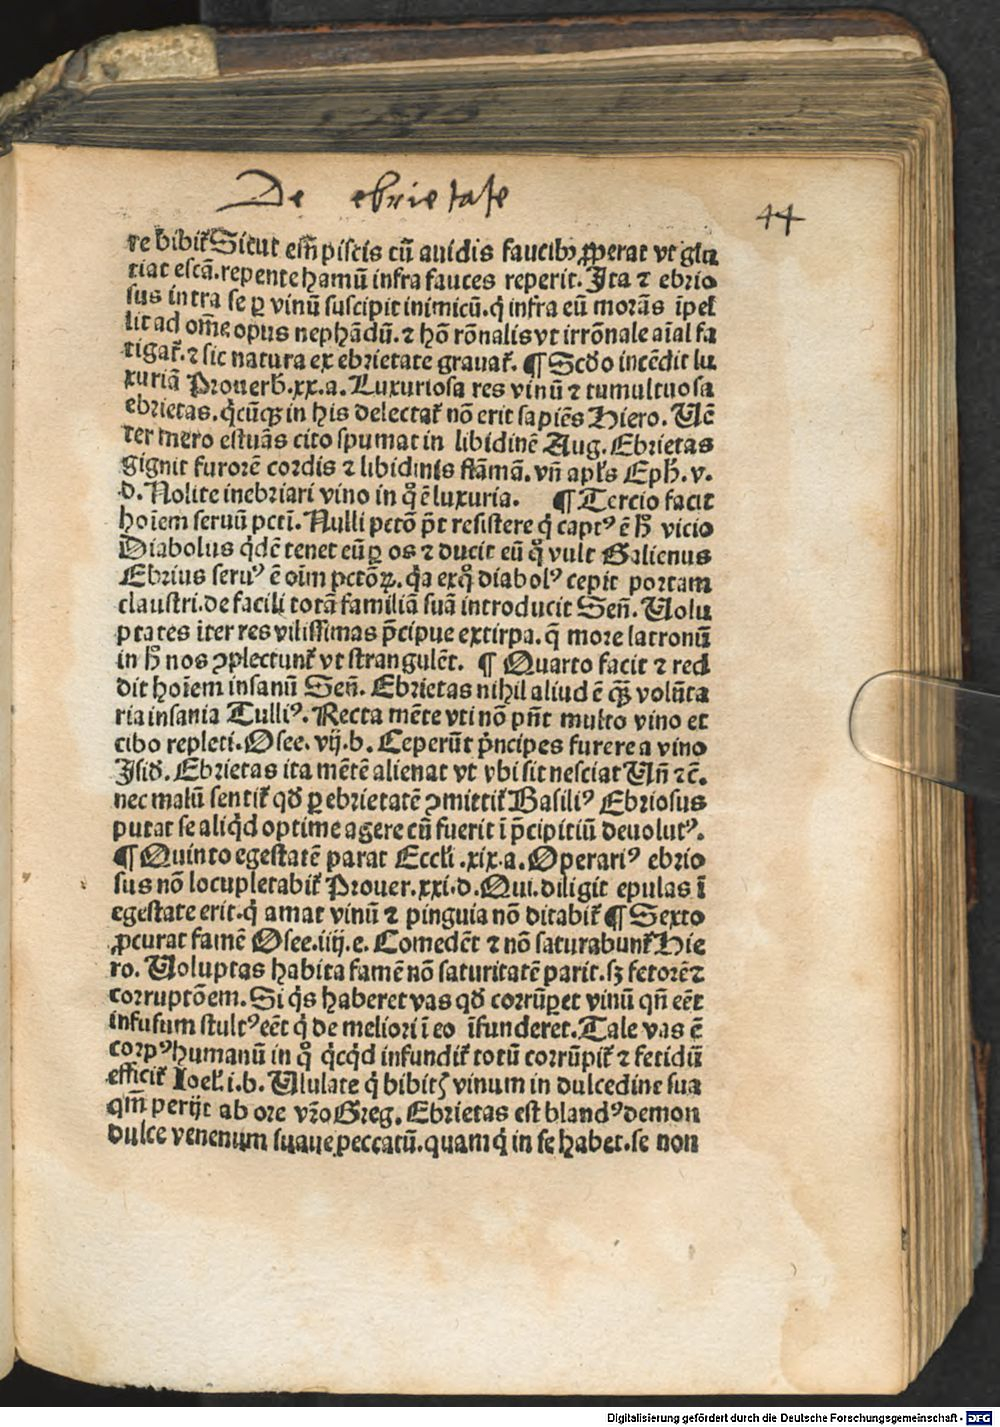 De ebrietate
44
re bibit᷑ Sicut em̄ piscis cū auidis faucibꝫ ꝓperat vt glu
tiat escā. repente hamū infra fauces reperit. Ita ⁊ ebrio
sus intra se ꝑ vinū suscipit inimicū. q̇ infra eū morās īpel
lit ad om̄e opus nephādū. ⁊ hō rōnalis vt irrōnale aīal fa
tigat᷑. ⁊ sic natura ex ebrietate grauat᷑. ¶ Scd̄o incēdit lu
xuriā Prouerb̄. xx. a. Luxuriosa res vinū ⁊ tumultuosa
ebrietas. q̇cūqꝫ in his delectat᷑ nō erit sapiēs Hiero. Uē
ter mero estuās cito spumat in libidinē Aug. Ebrietas
gignit furorē cordis ⁊ libidinis flāmā. vn̄ apl̄s Eph̄. v.
d. Nolite inebriari vino in qͦ ē luxuria. ¶ Tercio facit
hoīem seruū pctī. Nulli pctō p̄t resistere q̇ captꝰ ē hͦ vicio
Diabolus q̇dē tenet eū ꝑ os ⁊ ducit eū qͦ vult Galienus
Ebrius seruꝰ ē oīm pctōꝝ. q̇a ex qͦ diabolꝰ cepit portam
claustri. de facili totā familiā suā introducit Sen̄. Uolu
ptates īter res vilissimas p̄cipue extirpa. q̄ more latronū
in hͦ nos ꝯplectunt᷑ vt strangulēt. ¶ Quarto facit ⁊ red
dit hoīem insanū Sen̄. Ebrietas nihil aliud ē qꝫ̄ volūta
ria insania Tulliꝰ. Recta mēte vti nō pn̄t multo vino et
cibo repleti. Osee. vij. b. Ceperūt ṗncipes furere a vino
Isid̄. Ebrietas ita mētē alienat vt vbi sit nesciat Un̄ ⁊c̄.
nec malū sentit᷑ qd̄ ꝑ ebrietatē ꝯmittit᷑ Basiliꝰ Ebriosus
putat se aliq̇d optime agere cū fuerit ī p̄cipitiū deuolutꝰ.
¶ Quinto egestatē parat Eccli̅. xix. a. Operariꝰ ebrio
sus nō locupletabit᷑ Prouer. xxi. d. Qui. diligit epulas ī
egestate erit. q̇ amat vinū ⁊ pinguia nō ditabit᷑ ¶ Sexto
ꝓcurat famē Osee. iiij. e. Comedēt ⁊ nō saturabunt᷑ Hie
ro. Uoluptas habita famē nō saturitatē parit. sꝫ fetorē ⁊
corruptōem. Si q̇s haberet vas qd̄ corrūperet vinū qn̄ eēt
infusum stultꝰ eēt q̇ de meliori ī eo īfunderet. Tale vas ē
corpꝰ humanū in qͦ q̇cq̇d infundit᷑ totū corrūpit᷑ ⁊ fetidū
efficit᷑ Joel̄. i. b. Ululate q̇ bibitꝭ vinum in dulcedine sua
qm̄ perijt ab ore vr̄o Greg. Ebrietas est blandꝰ demon
dulce venenum suaue peccatū. quam q̇ in se habet. se non
Digitalisierung gefördert durch die Deutsche Forschungsgemeinschaft - DFG